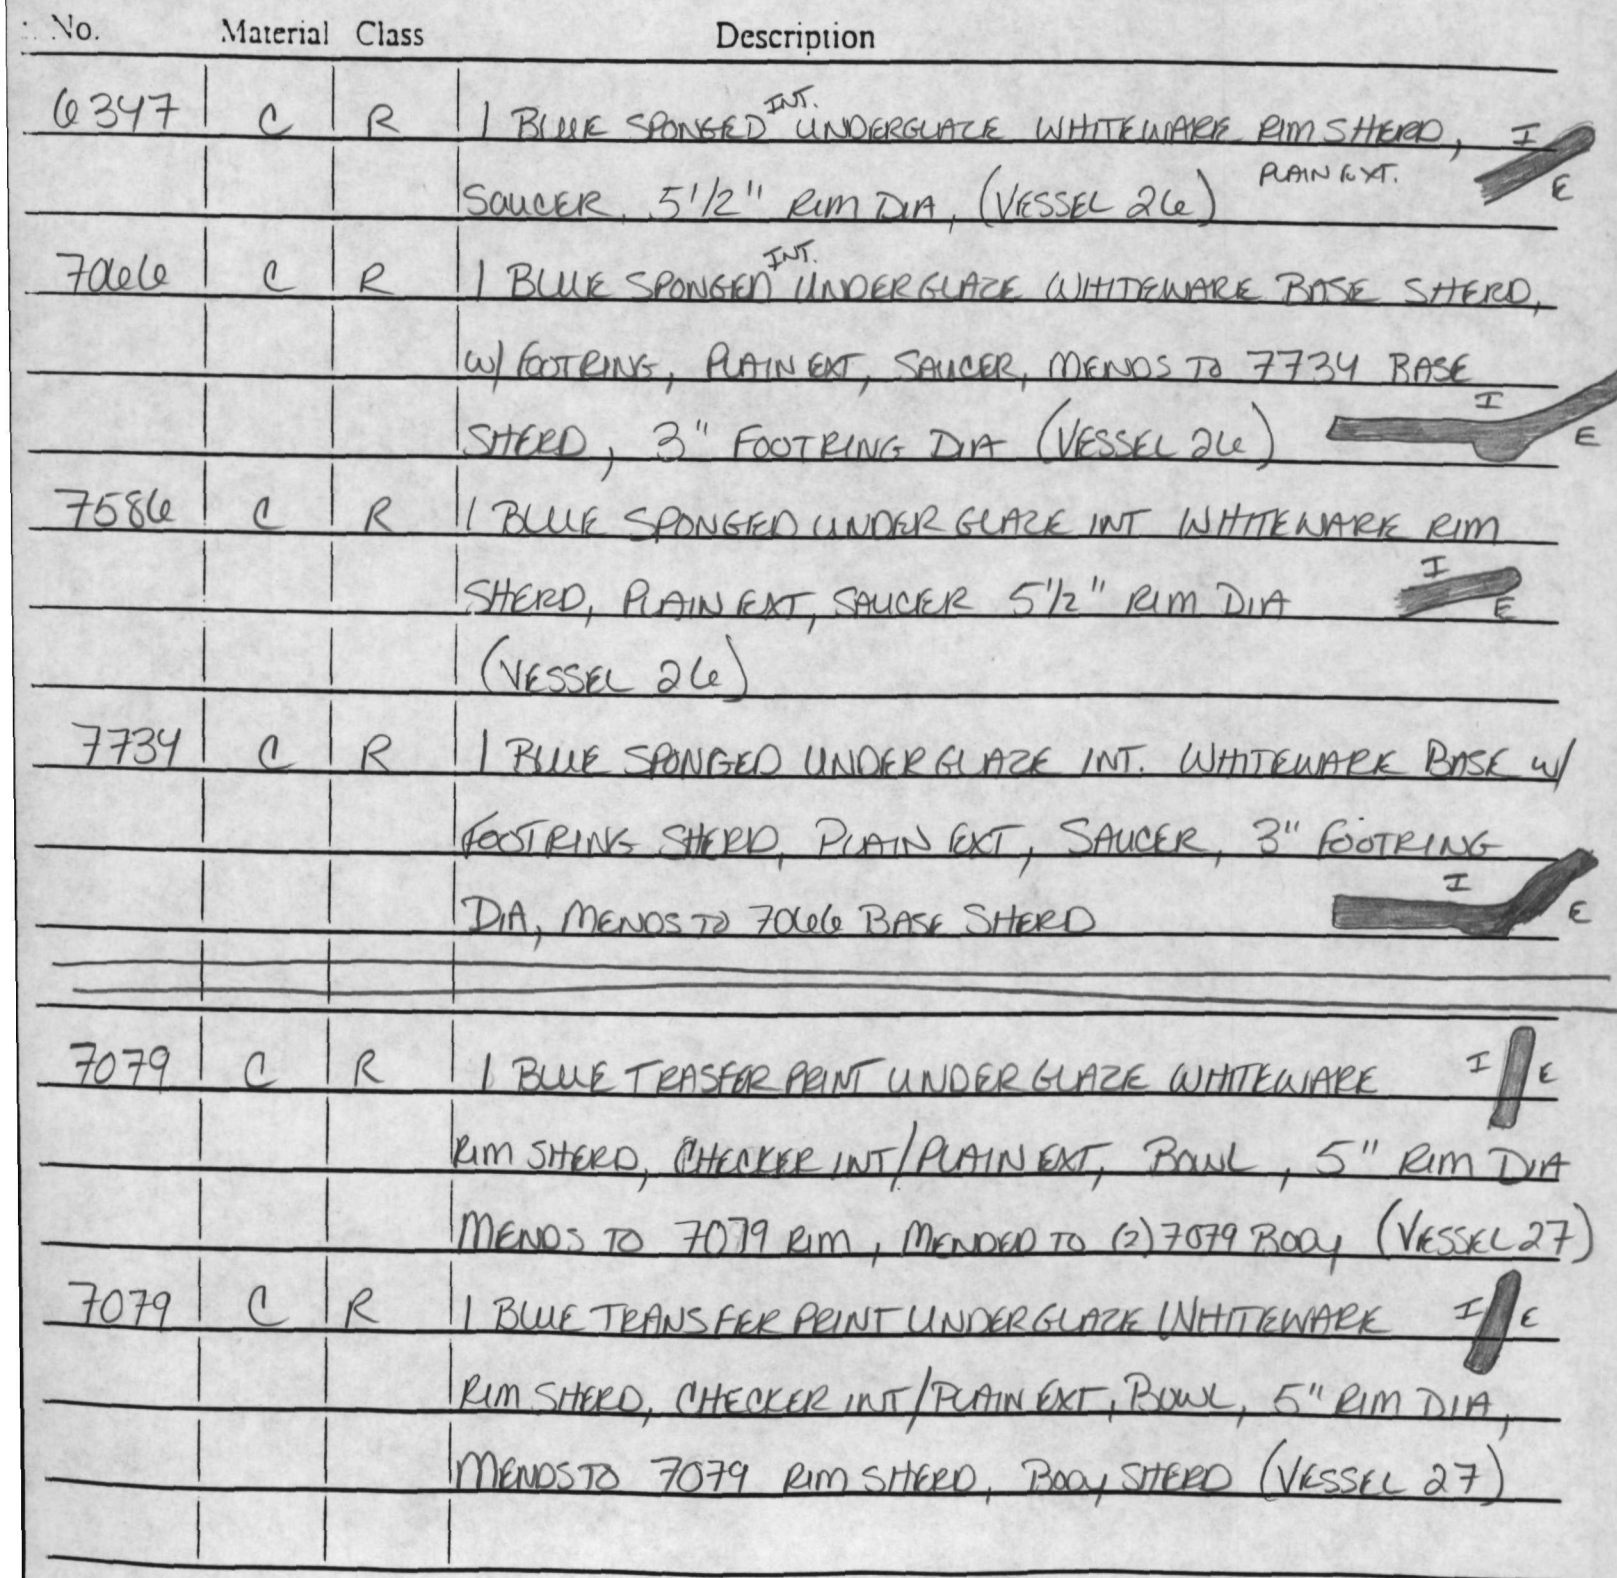 No. Material Class Description
6347 C R 1 BLUE SPONGED INT. UNDERGLAZE WHITEWARE RIM SHERD, I
PLAIN EXT. E
SAUCER, 5 1/2" RIM DIA, (VESSEL 26)
7066 C R 1 BLUE SPONGED INT. UNDERGLAZE WHITEWARE BASE SHERD,
W/ FOOTRING, PLAIN EXT, SAUCER, MENDS TO 7734 BASE
SHERD, 3" FOOTRING DIA (VESSEL 26) I E
7586 C R 1 BLUE SPONGED UNDERGLAZE INT WHITEWARE RIM
SHERD, PLAIN EXT, SAUCER 5 1/2" RIM DIA I E
(VESSEL 26)
7734 C R 1 BLUE SPONGED UNDERGLAZE INT. WHITEWARE BASE W/
FOOTRING SHERD, PLAIN EXT, SAUCER, 3" FOOTRING
DIA, MENDS TO 7066 BASE SHERD I E
7079 C R 1 BLUE TRASFER PRINT UNDERGLAZE WHITEWARE I E
RIM SHERD, CHECKER INT/PLAIN EXT, BOWL, 5" RIM DIA
MENDS TO 7079 RIM, MENDED TO (2) 7079 BODY (VESSEL 27)
7079 C R 1 BLUE TRANSFER PRINT UNDERGLAZE WHITEWARE I E
RIM SHERD, CHECKER INT/PLAIN EXT, BOWL, 5" RIM DIA,
MENDS TO 7079 RIM SHERD, BODY SHERD (VESSEL 27)